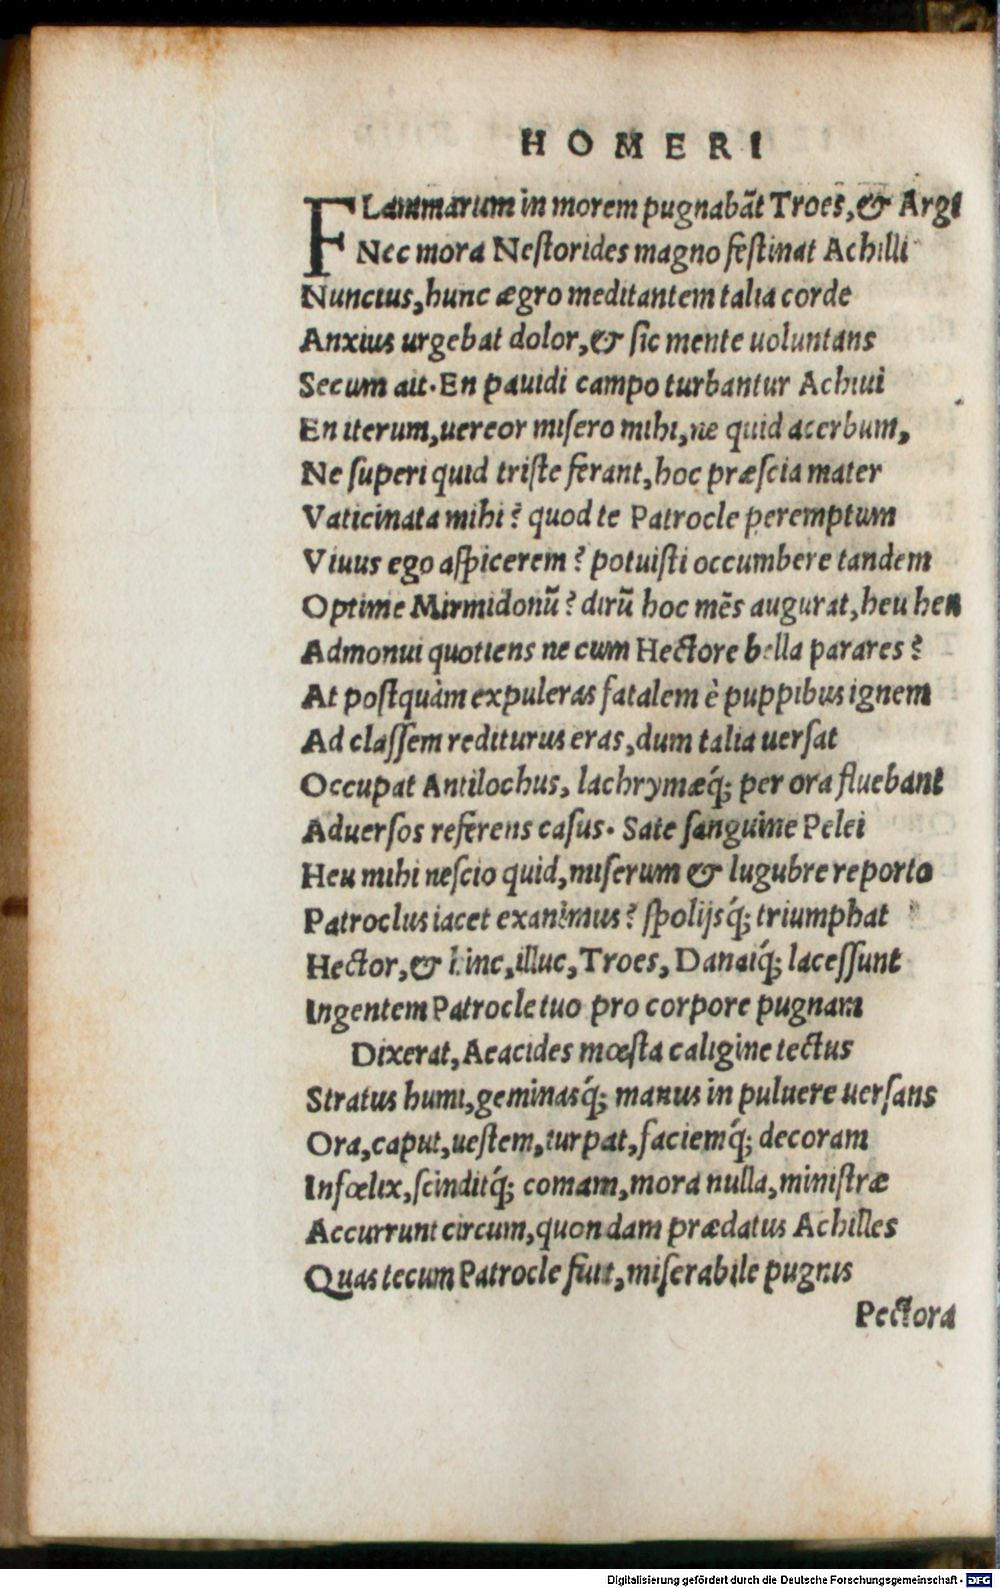 HOMERI
FLammarum in morem pugnabãt Troes, & Argi
Nec mora Nestorides magno festinat Achilli
Nuncius, hunc ægro meditantem talia corde
Anxius urgebat dolor, & sic mente uoluntans
Secum ait. En pauidi campo turbantur Achiui
En iterum, uereor misero mihi, ne quid acerbum,
Ne superi quid triste ferant, hoc præscia mater
Vaticinata mihi? quod te Patrocle peremptum
Viuus ego aspicerem? potuisti occumbere tandem
Optime Mirmidonũ? dirũ hoc mẽs augurat, heu heu
Admonui quotiens ne cum Hectore bella parares?
At postquàm expuleras fatalem è puppibus ignem
Ad classem rediturus eras, dum talia uersat
Occupat Antilochus, lachrymæq́; per ora fluebant
Aduersos referens casus. Sate sanguine Pelei
Heu mihi nescio quid, miserum & lugubre reporto
Patroclus iacet exanimus? spolijsq́; triumphat
Hector, & hinc, illuc, Troes, Danaiq́; lacessunt
Ingentem Patrocle tuo pro corpore pugnam
Dixerat, Aeacides mœsta caligine tectus
Stratus humi, geminasq́; manus in puluere uersans
Ora, caput, uestem, turpat, faciemq́; decoram
Infœlix, scinditq́; comam, mora nulla, ministræ
Accurrunt circum, quondam prædatus Achilles
Quas tecum Patrocle fuit, miserabile pugnis
Pectora
Digitalisierung gefördert durch die Deutsche Forschungsgemeinschaft - DFG